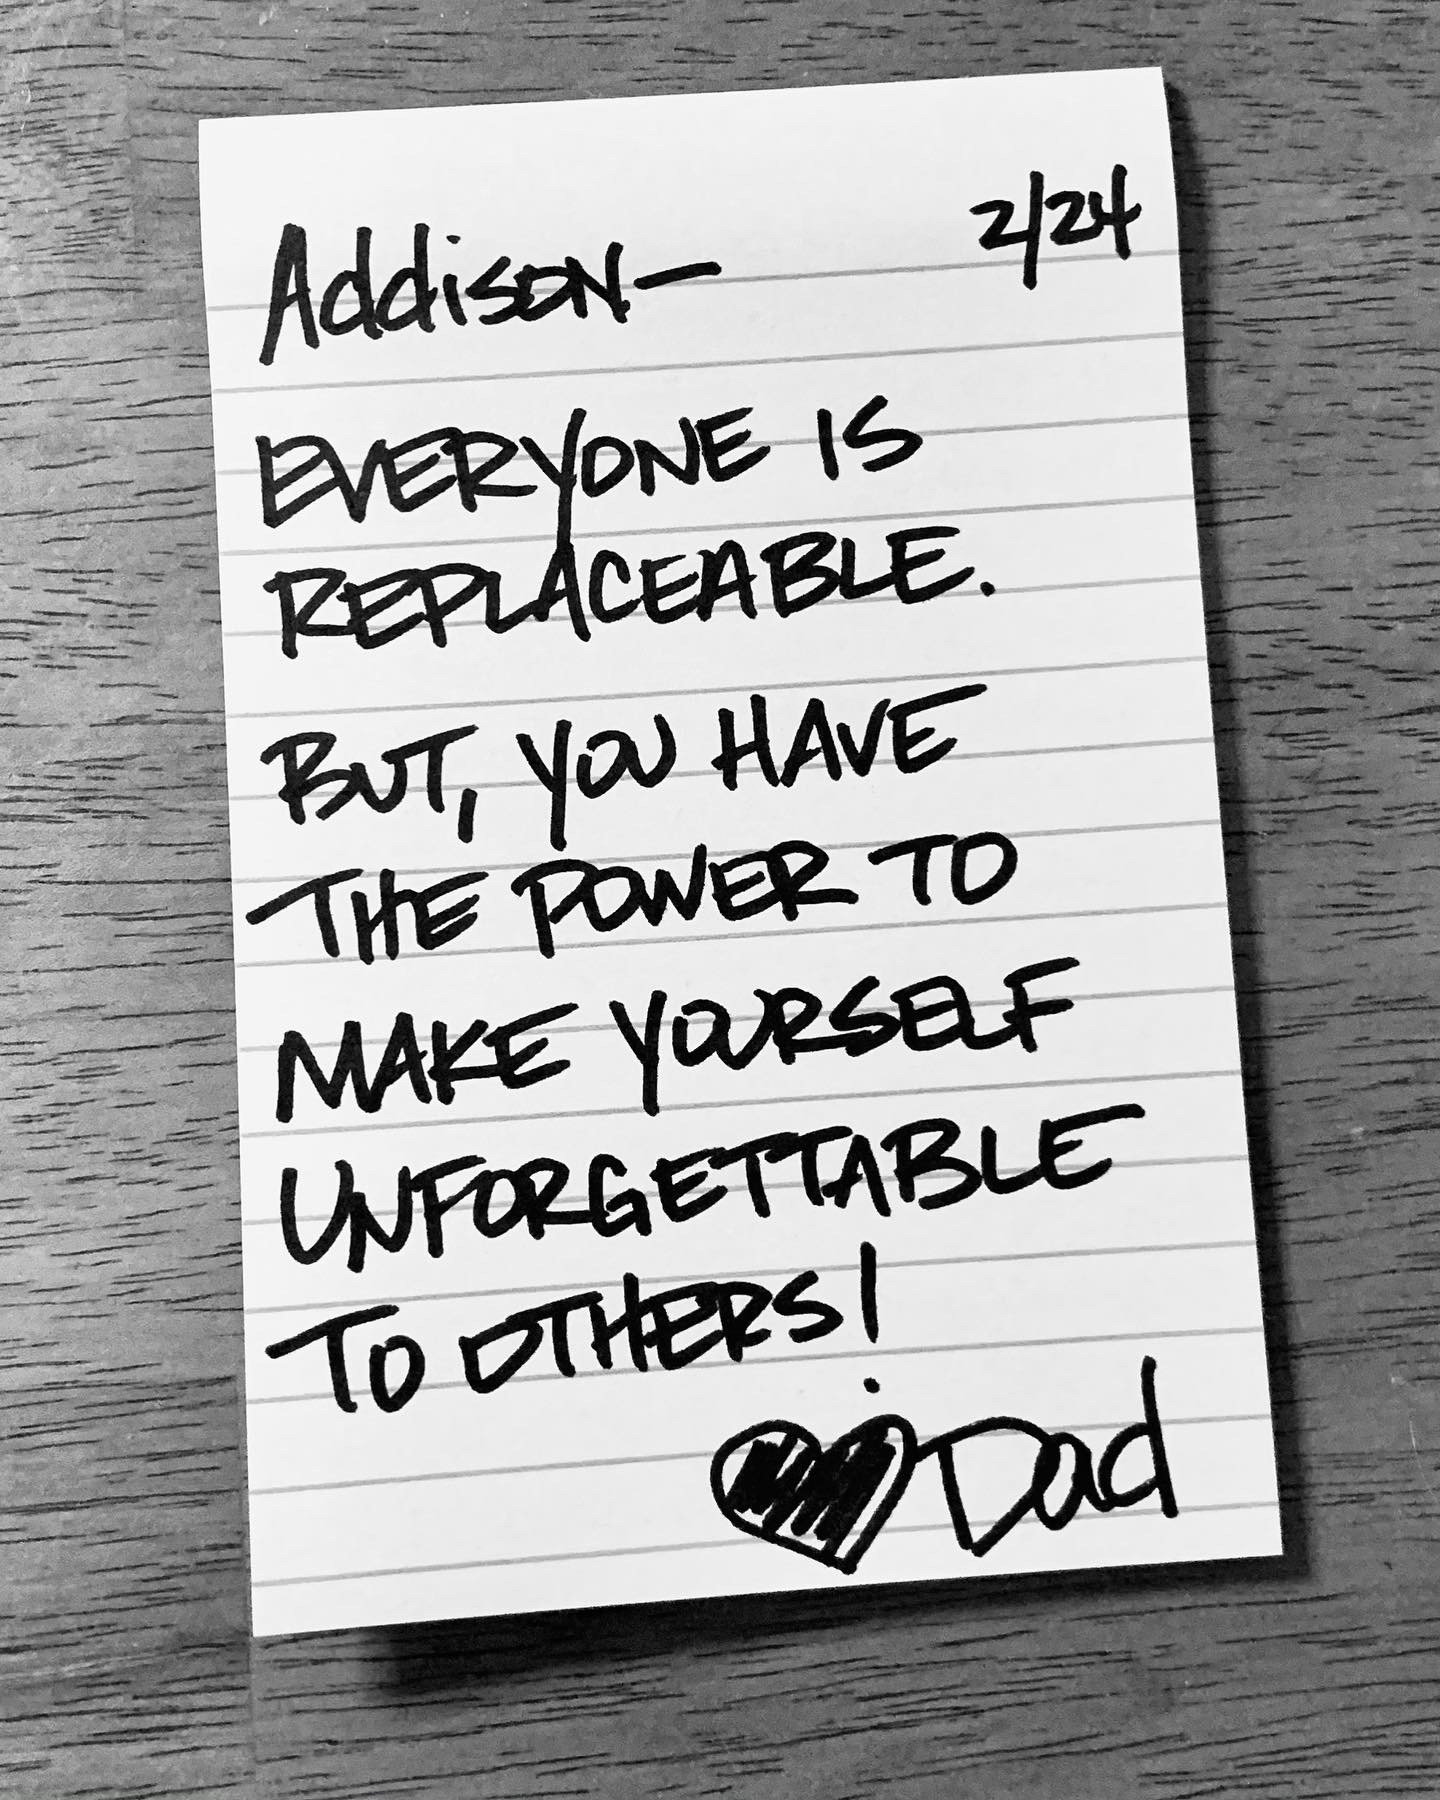 2/24
Addison—
EVERYONE IS
REPLACEABLE.
BUT, YOU HAVE
THE POWER TO
MAKE YOURSELF
UNFORGETTABLE
TO OTHERS!
Dad